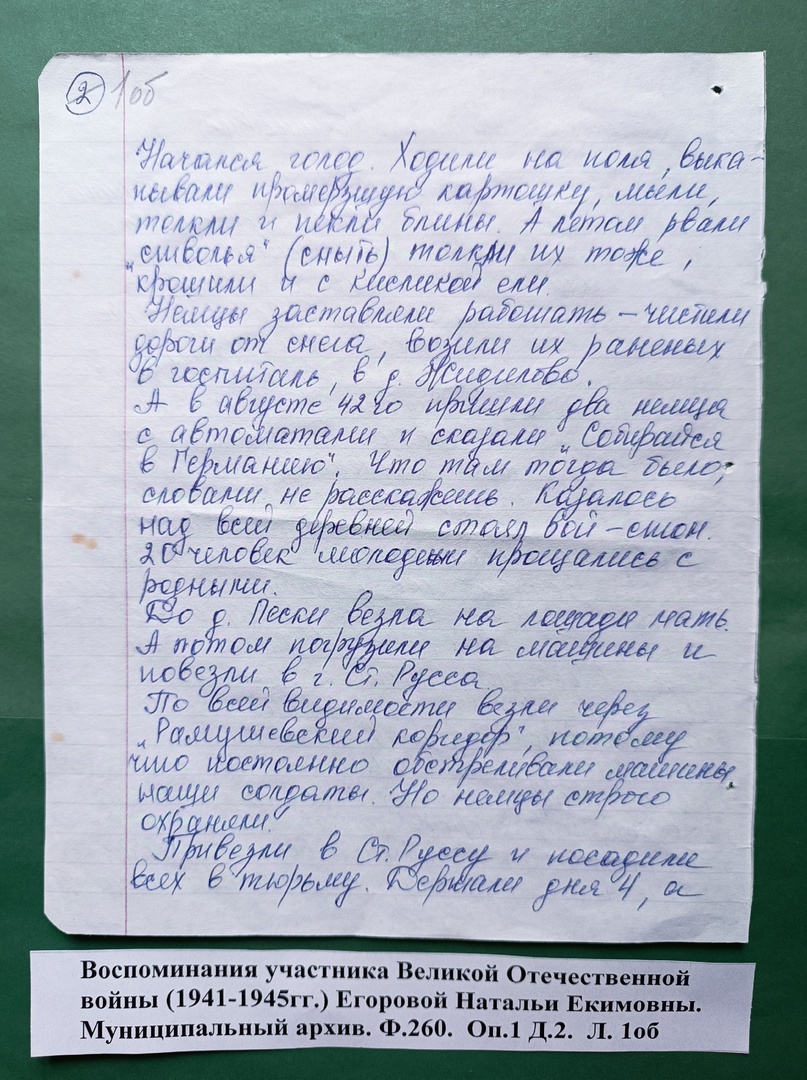 2 1об
Начался голод. Ходили на поля, выка-
пывали промерзшую картошку, мыли,
толкли и пекли блины. А летом рвали
"стволья" (сныть) толкли их тоже,
крошили и с кислицей ели.
Немцы заставляли работать – чистили
дороги от снега, возили их раненых
в госпиталь, в д. Жидилово.
А в августе 42го пришли два немца
с автоматами и сказали „Собирайся
в Германию". Что там тогда было,
словами не расскажешь. Казалось
над всей деревней стоял вой – стон.
20 человек молодежи прощались с
родными.
До д. Пески везла на лошади мать.
А потом погрузили на машины и
повезли в г. Ст. Русса.
По всей видимости везли через
„Рамушевский коридор", потому
что постоянно обстреливали машины
наши солдаты. Но немцы строго
охраняли.
Привезли в Ст. Руссу и посадили
всех в тюрьму. Держали дня 4, а
Воспоминания участника Великой Отечественной
войны (1941-1945гг.) Егоровой Натальи Екимовны.
Муниципальный архив. Ф.260. Оп.1 Д.2. Л. 1об